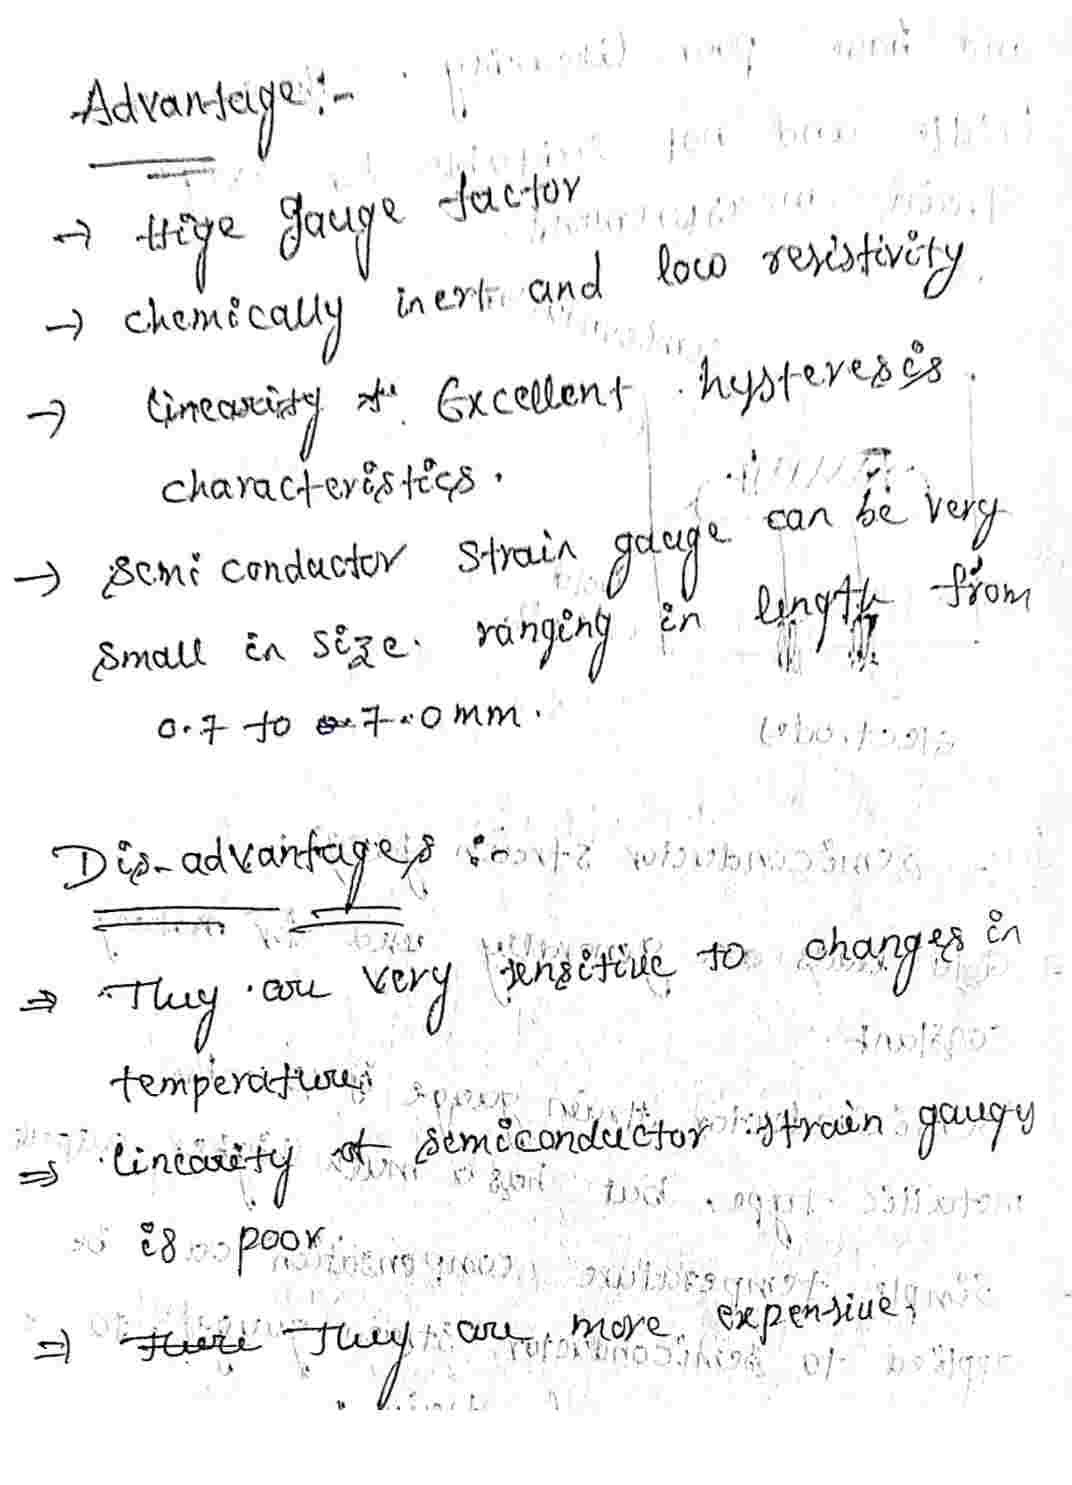 Advantage:-
→ Hige gauge factor
→ chemically inert and low resistivity.
→ linearity Excellent hysteresis
characteristics.
→ Semi conductor strain gauge can be very
small in size. ranging in length from
0.7 to 7.0 mm.
Dis-advantages :-
⇒ They are very sensitive to changes in
temperature.
⇒ linearity of semiconductor strain gaugy
is poor
⇒ They are more expensive.